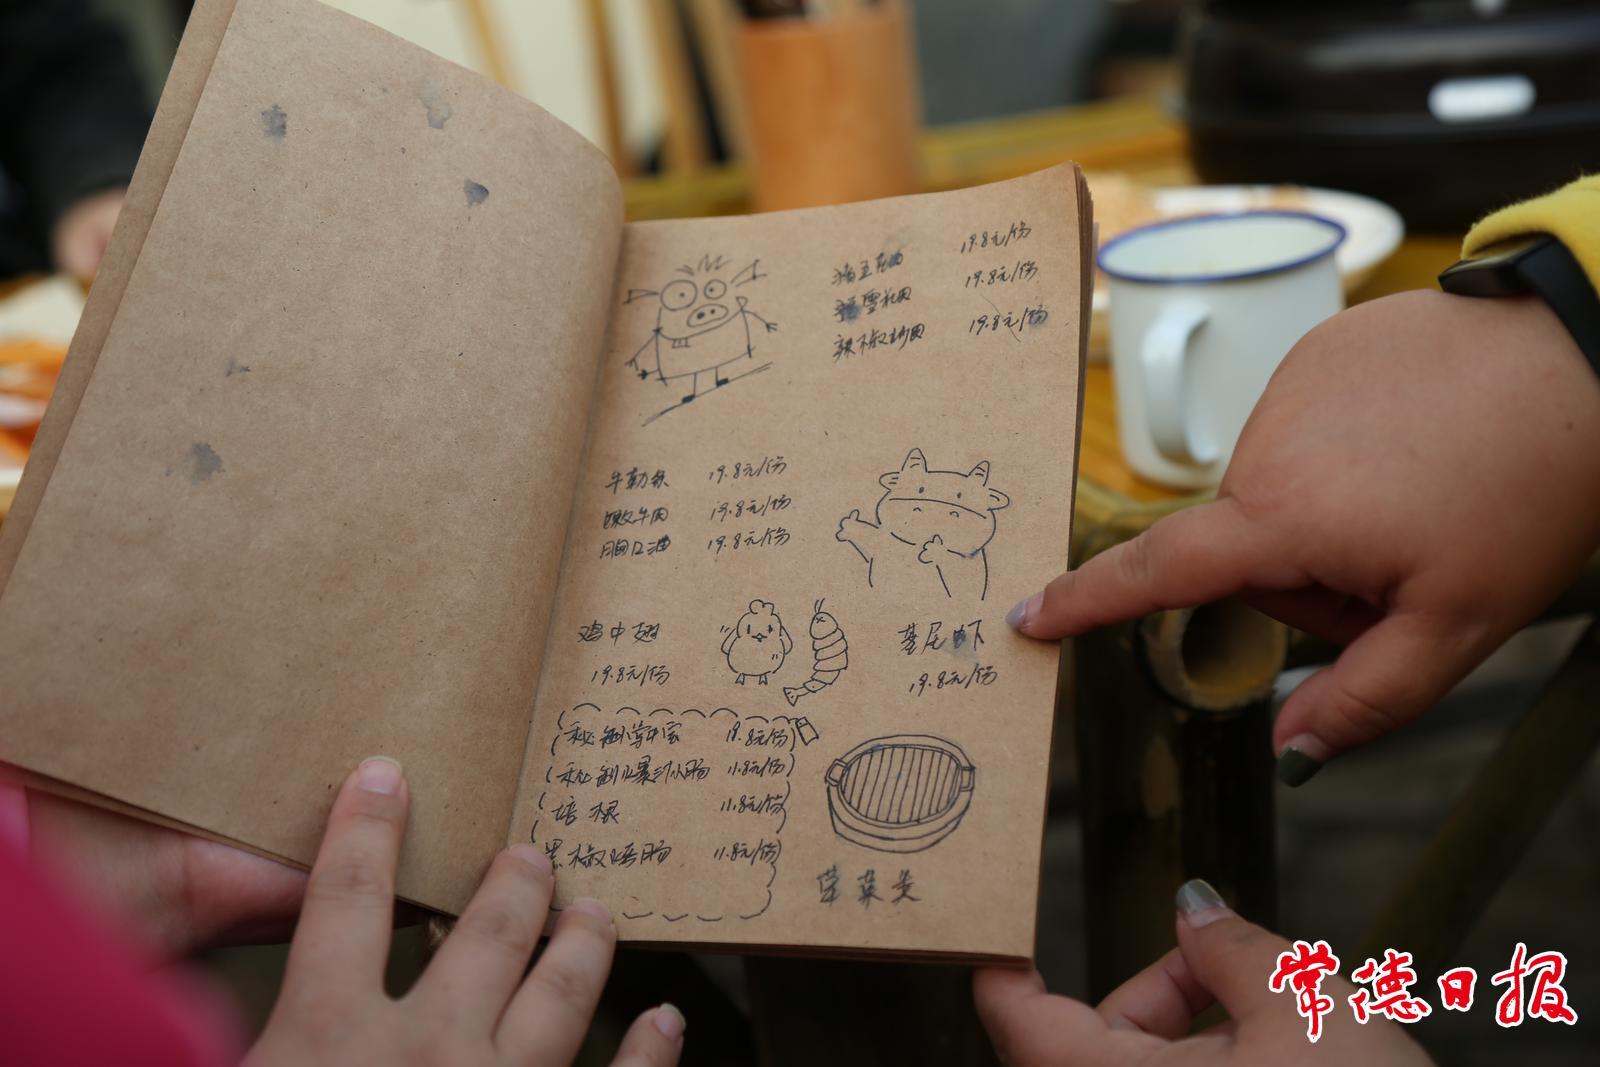 猪五花肉 19.8元/份
猪雪花肉 19.8元/份
辣椒炒肉 19.8元/份
牛肋条 19.8元/份
嫩牛肉 19.8元/份
胸口油 19.8元/份
鸡中翅
19.8元/份
基尾虾
19.8元/份
秘制掌中宝 19.8元/份
秘制爆汁小肠 11.8元/份
培根 11.8元/份
黑椒烤肠 11.8元/份
荤菜类
常德日报